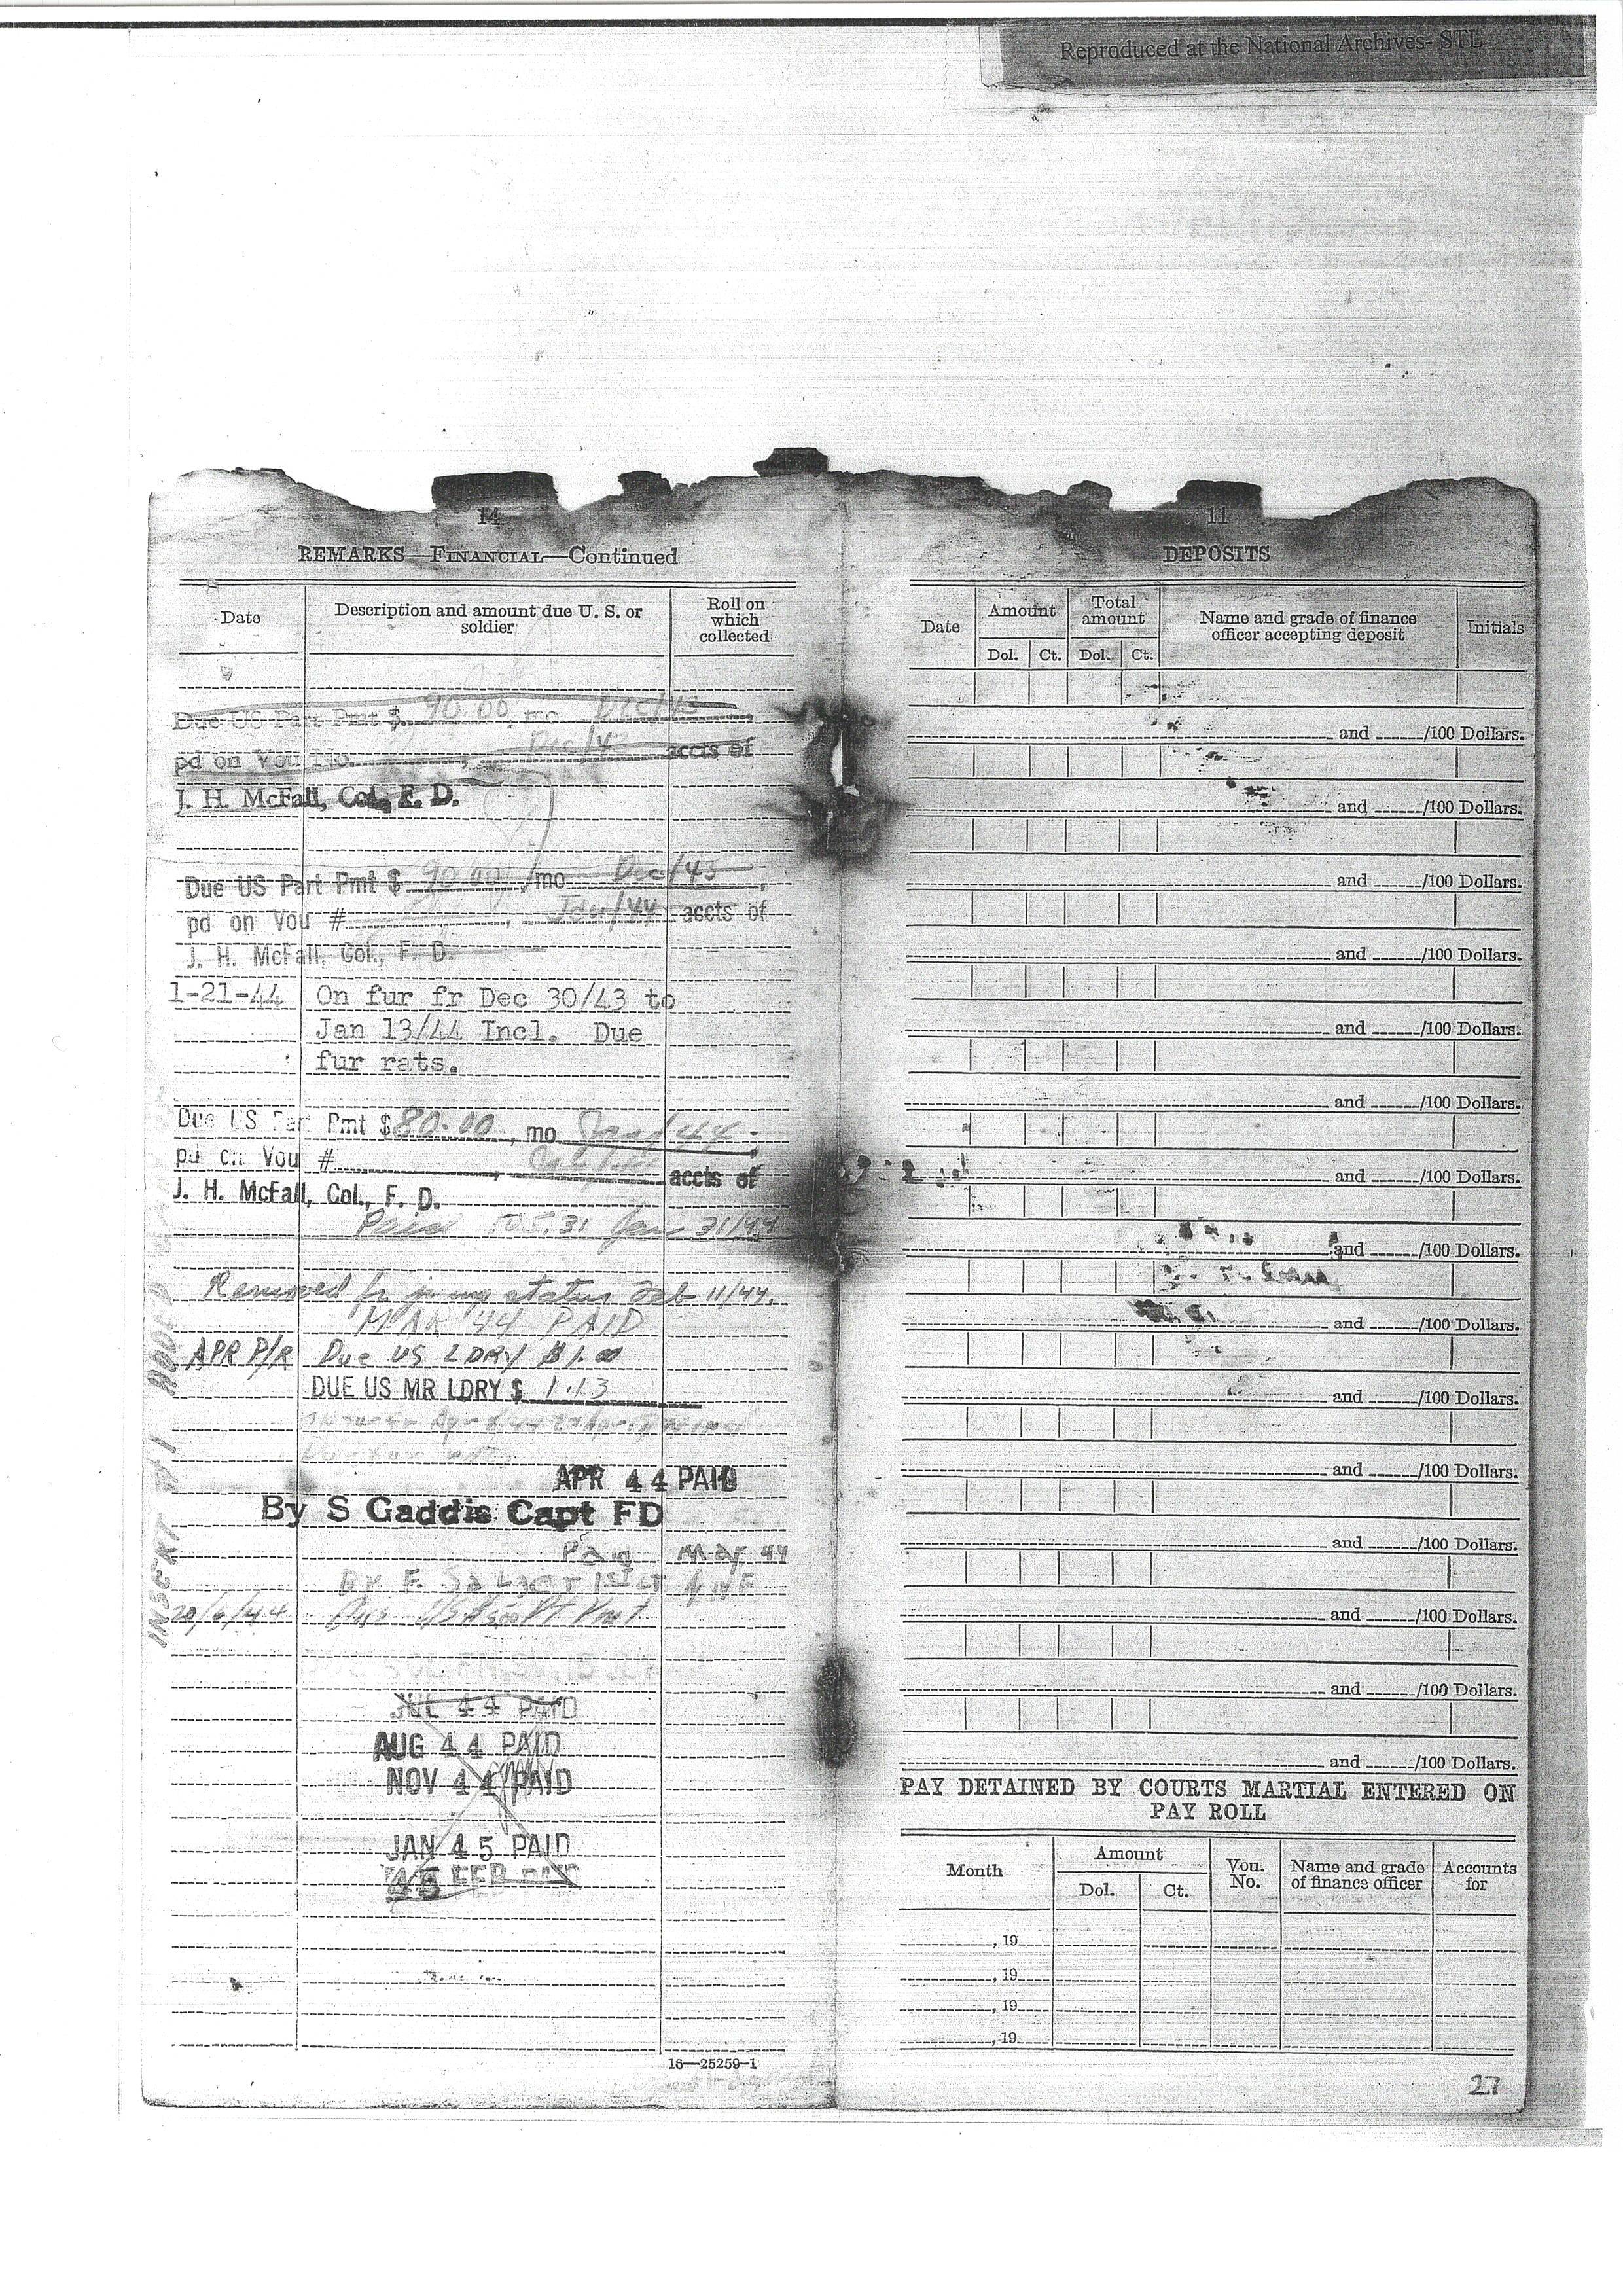 Reproduced at the National Archives- STL
14
REMARKS—FINANCIAL—Continued
Date
Description and amount due U. S. or soldier
Roll on which collected
Due US Part Pmt $ 90.00, mo. Dec/43,
pd on Vou No. , Dec/43 accts of
J. H. McFall, Col., F. D.
Due US Part Pmt $ 90.00, mo Dec/43,
pd on Vou # , Jan/44 accts of
J. H. McFall, Col., F. D.
1-21-44 On fur fr Dec 30/43 to
Jan 13/44 Incl. Due
fur rats.
Due US Part Pmt $ 80.00, mo Jan/44,
pd on Vou # , accts of
J. H. McFall, Col., F. D.
Paid 105.31 Jan 31/44
Removed fr status Feb 11/44.
MAR '44 PAID
APR P/R Due US LDRY $1.00
DUE US MR LDRY $ 1.13
APR 44 PAID
By S Gaddis Capt FD
Paid May 44
By F. 1st Lt
20/6/44 Due US Pt Pmt
JUL 44 PAID
AUG 44 PAID
NOV 44 PAID
JAN 45 PAID
45 FEB PAID
16—25259-1
INSERT #1 ADDED
11
DEPOSITS
Date
Amount
Dol. Ct.
Total amount
Dol. Ct.
Name and grade of finance officer accepting deposit
Initials
and /100 Dollars.
and /100 Dollars.
and /100 Dollars.
and /100 Dollars.
and /100 Dollars.
and /100 Dollars.
and /100 Dollars.
and /100 Dollars.
and /100 Dollars.
and /100 Dollars.
and /100 Dollars.
and /100 Dollars.
and /100 Dollars.
and /100 Dollars.
and /100 Dollars.
PAY DETAINED BY COURTS MARTIAL ENTERED ON
PAY ROLL
Month
Amount
Dol. Ct.
Vou. No.
Name and grade of finance officer
Accounts for
, 19
, 19
, 19
, 19
27